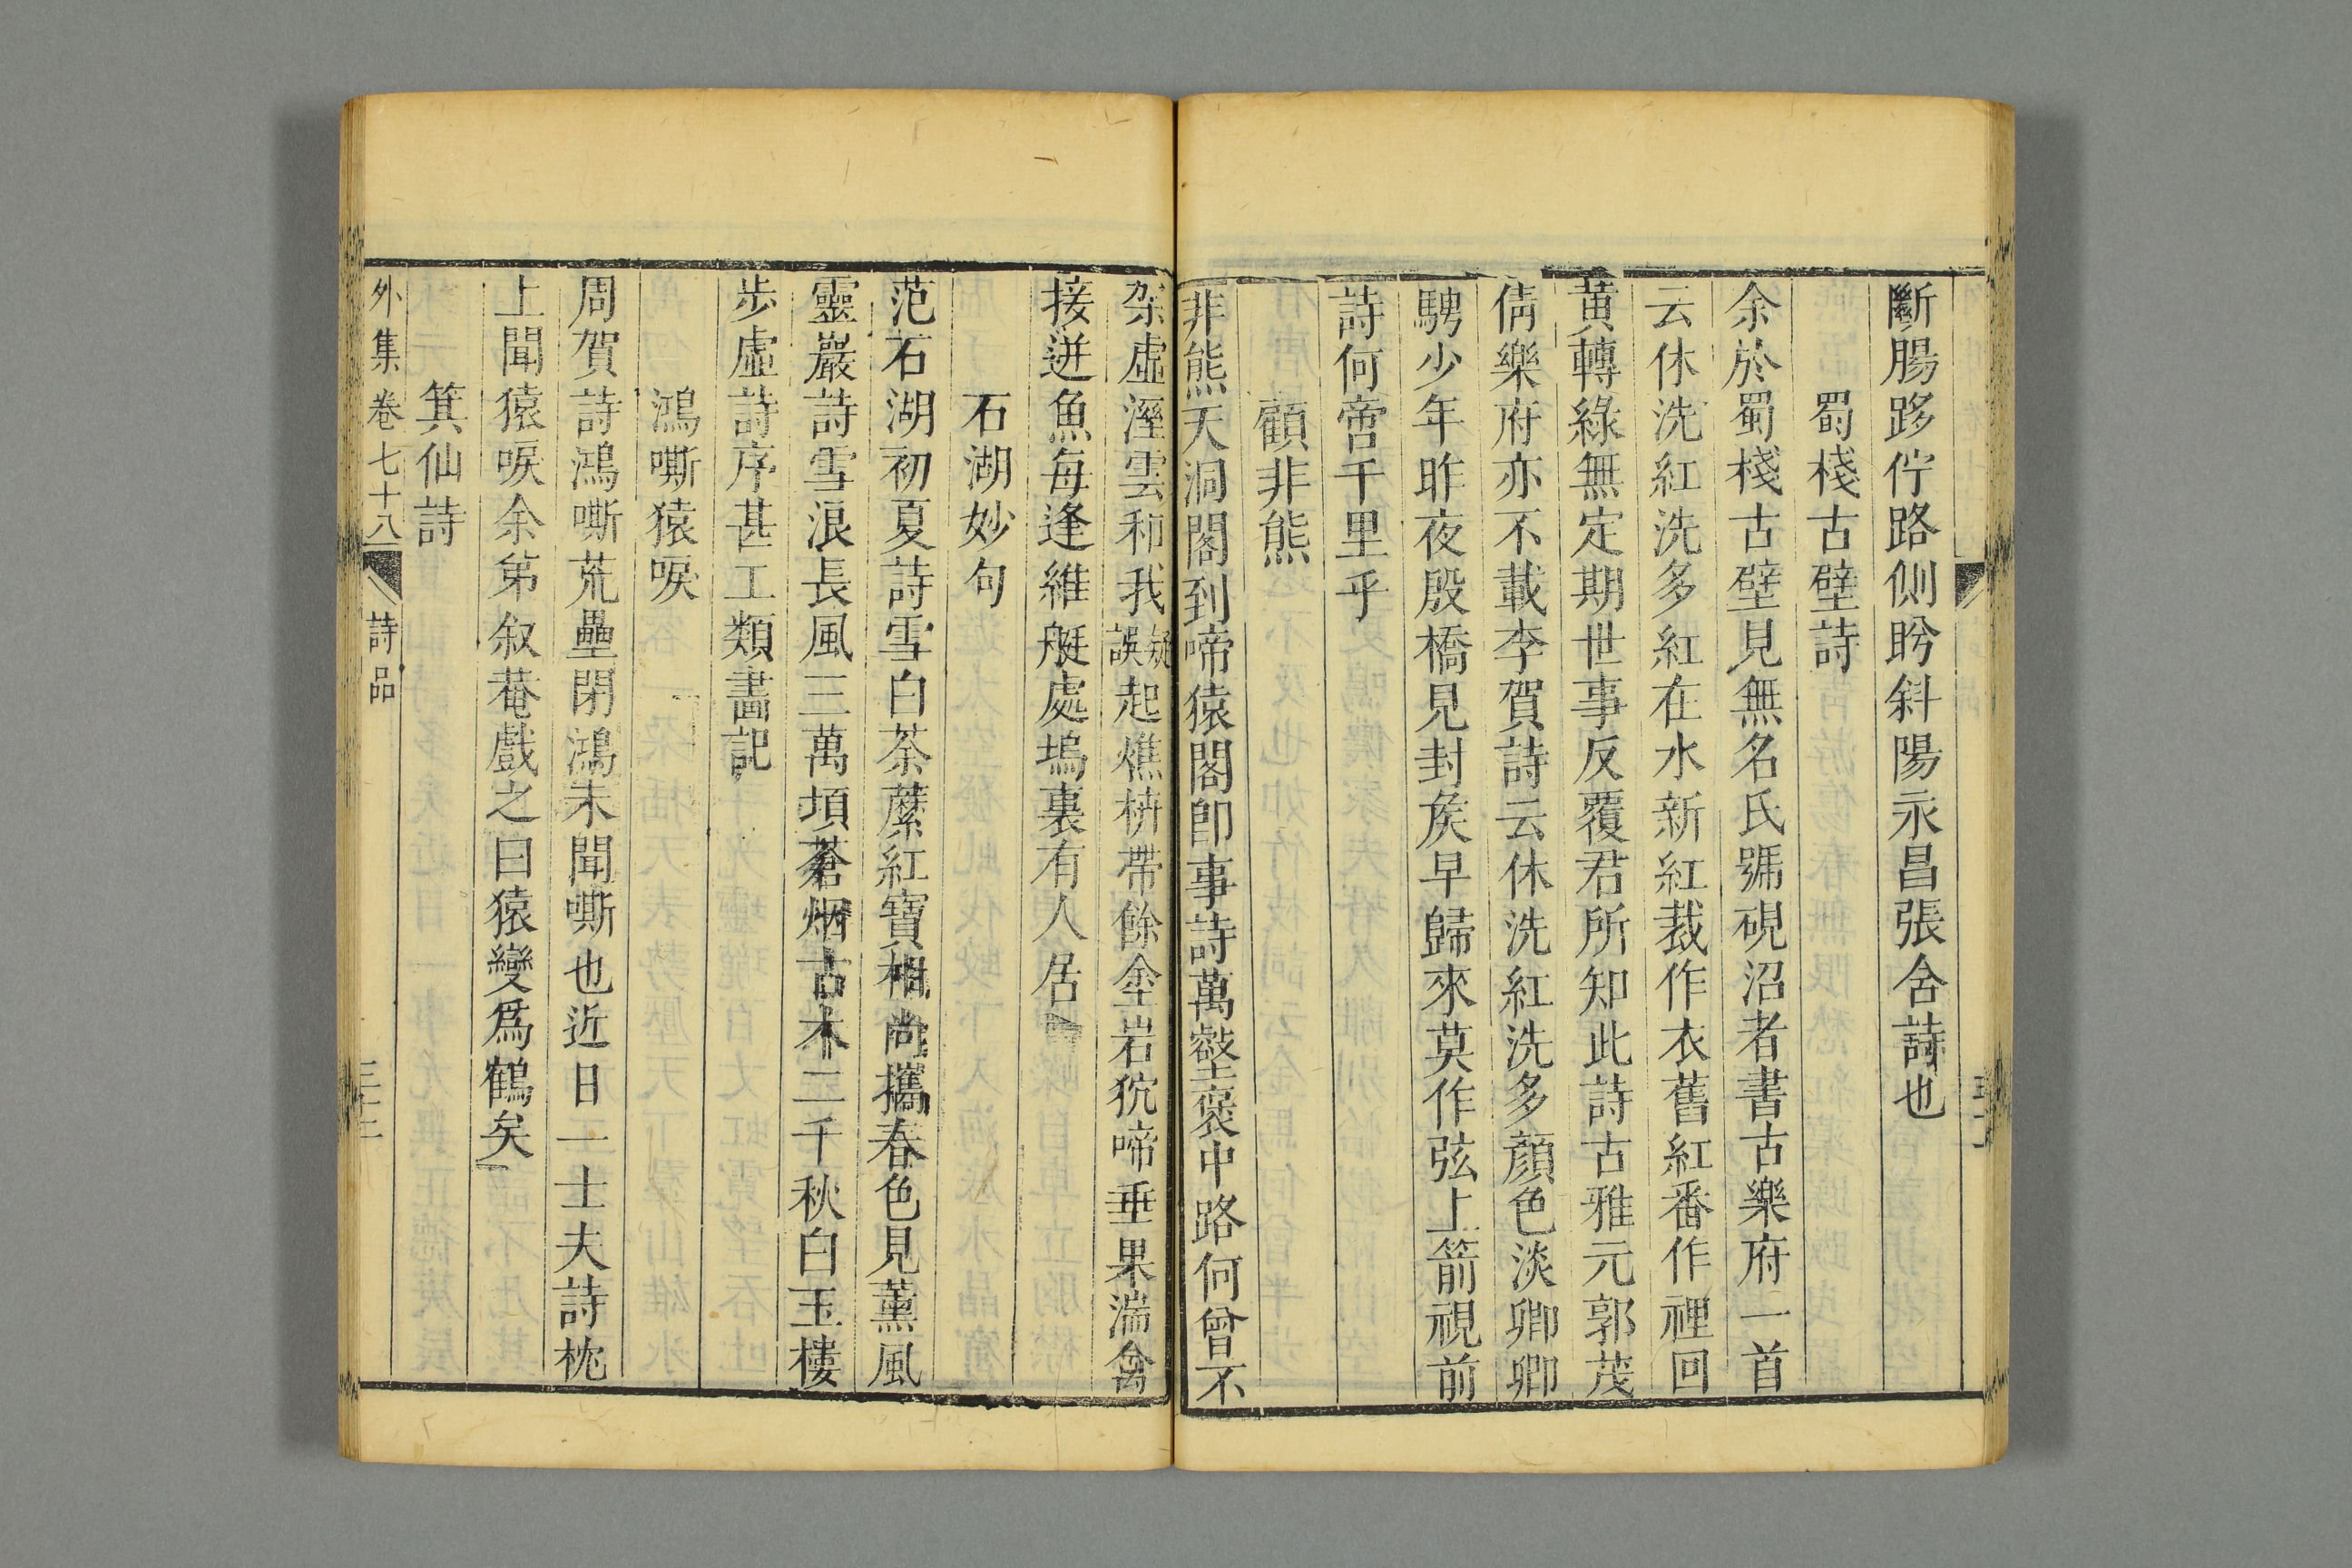 斷腸跢佇路側盻斜陽永昌張含詩也
蜀棧古壁詩
余於蜀棧古壁見無名氏號硯沼者書古樂府一首
云休洗紅洗多紅在水新紅裁作衣舊紅番作裡回
黃轉綠無定期世事反覆君所知此詩古雅元郭茂
倩樂府亦不載李賀詩云休洗紅洗多顔色淡卿卿
騁少年昨夜殷橋見封矦早歸來莫作弦上箭視前
詩何啻千里乎
顧非熊
非熊天洞閣到啼猿閣即事詩萬壑褎中路何曾不
架虛溼雲和我疑誤起燋枿帶餘金岩狖啼垂果湍禽
接迸魚每逢維艇處塢裏有人居
石湖妙句
范石湖初夏詩雪白荼蘼紅寶相尚攜春色見薰風
靈巖詩雪浪長風三萬頃蒼烟古木二千秋白玉樓
步虛詩序甚工類畫記
鴻嘶猿唳
周賀詩鴻嘶荒壘閉鴻未聞嘶也近日一士夫詩枕
上聞猿唳余弟叙菴戲之曰猿變爲鶴矣
箕仙詩
外集卷七十八
詩品